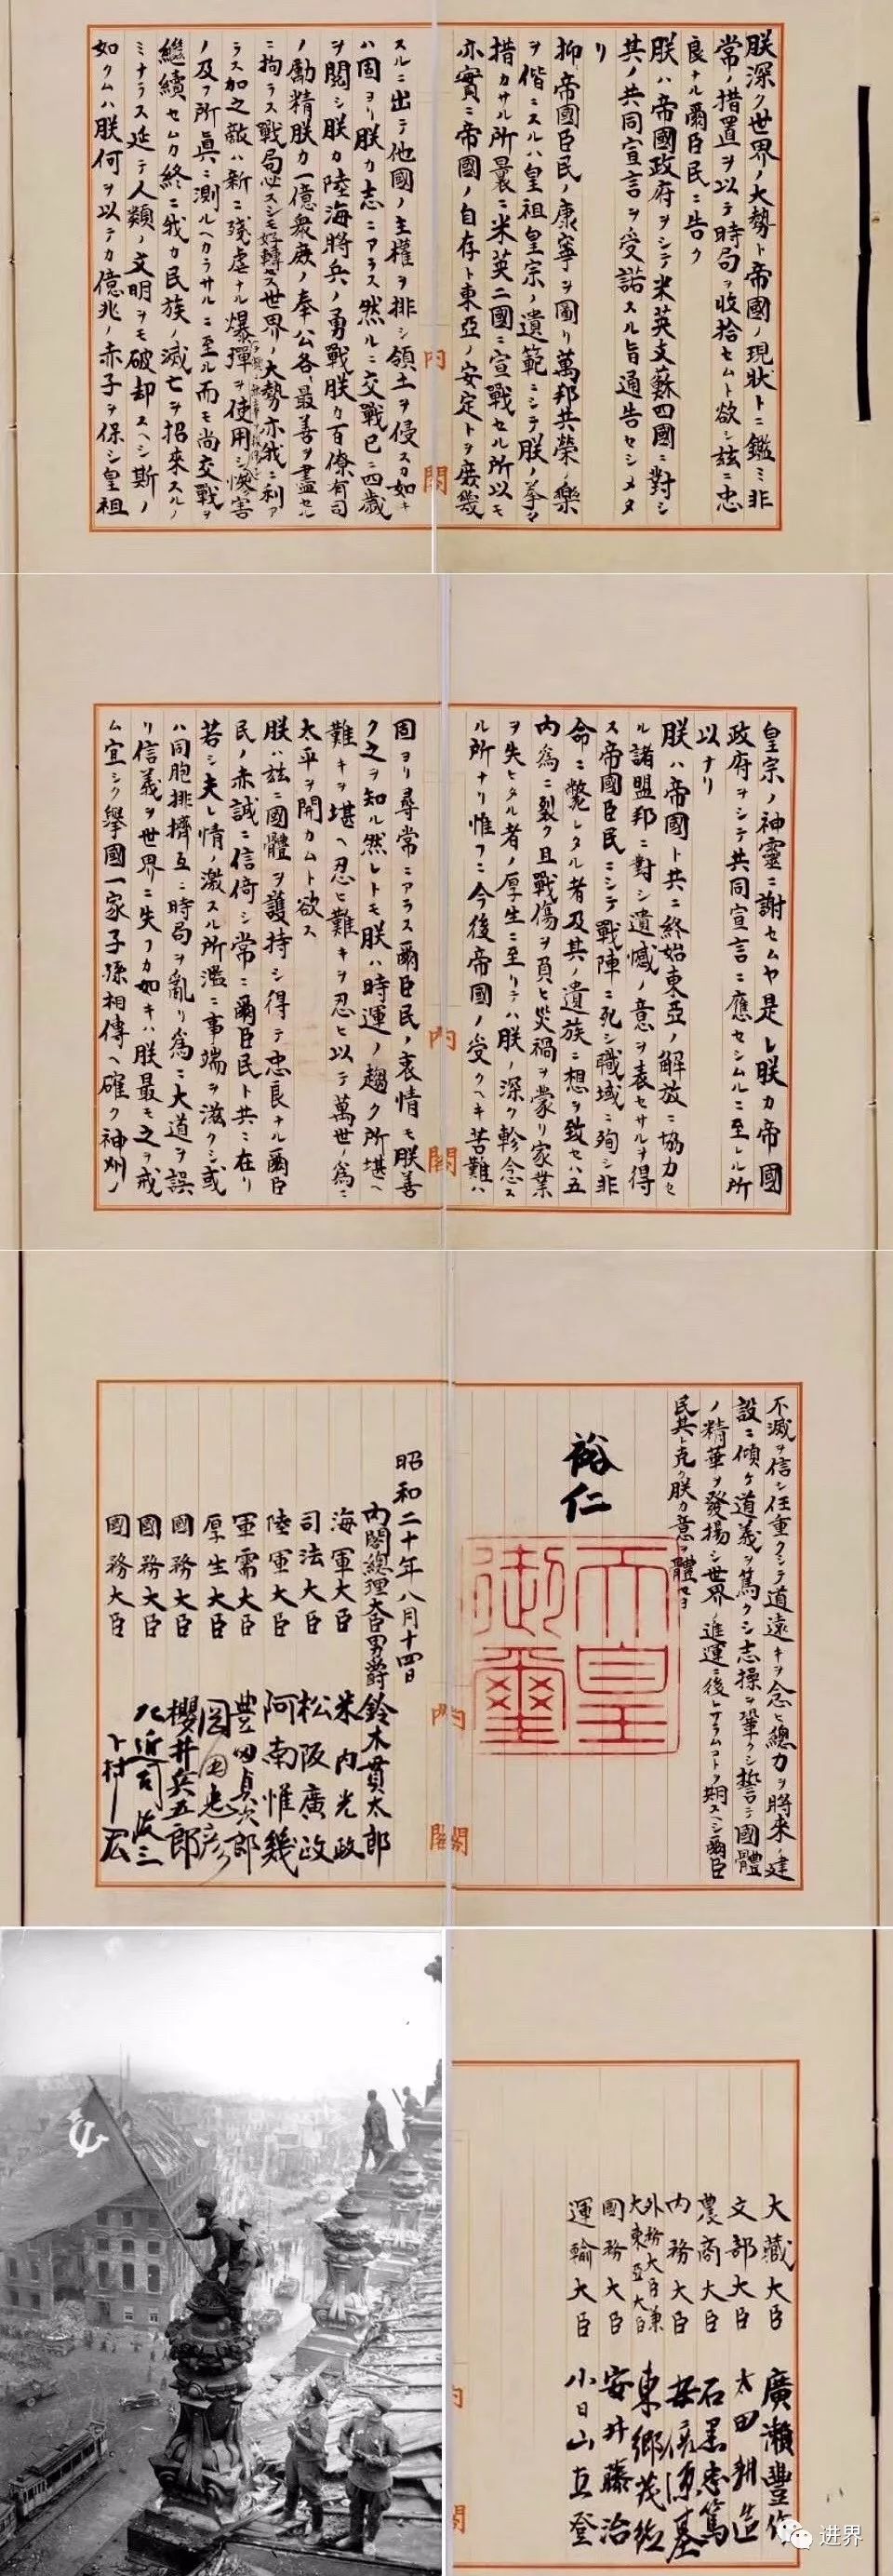 朕深ク世界ノ大勢ト帝國ノ現狀トニ鑑ミ非
常ノ措置ヲ以テ時局ヲ收拾セムト欲シ茲ニ忠
良ナル爾臣民ニ告ク
朕ハ帝國政府ヲシテ米英支蘇四國ニ對シ
其ノ共同宣言ヲ受諾スル旨通告セシメタ
リ
抑〻帝國臣民ノ康寧ヲ圖リ萬邦共榮ノ樂
ヲ偕ニスルハ皇祖皇宗ノ遺範ニシテ朕ノ拳〻
措カサル所曩ニ米英二國ニ宣戰セル所以モ
亦實ニ帝國ノ自存ト東亞ノ安定トヲ庶幾
スルニ出テ他國ノ主權ヲ排シ領土ヲ侵スカ如キ
ハ固ヨリ朕カ志ニアラス然ルニ交戰已ニ四歲
ヲ閱シ朕カ陸海將兵ノ勇戰朕カ百僚有司
ノ勵精朕カ一億衆庶ノ奉公各〻最善ヲ盡セル
ニ拘ラス戰局必スシモ好轉セス世界ノ大勢亦我ニ利ア
ラス加之敵ハ新ニ殘虐ナル爆彈ヲ使用シ慘害
ノ及フ所眞ニ測ルヘカラサルニ至ル而モ尚交戰ヲ
繼續セムカ終ニ我カ民族ノ滅亡ヲ招來スルノ
ミナラス延テ人類ノ文明ヲモ破却スヘシ斯ノ
如クムハ朕何ヲ以テカ億兆ノ赤子ヲ保シ皇祖
內閣
皇宗ノ神靈ニ謝セムヤ是レ朕カ帝國
政府ヲシテ共同宣言ニ應セシムルニ至レル所
以ナリ
朕ハ帝國ト共ニ終始東亞ノ解放ニ協力セ
ル諸盟邦ニ對シ遺憾ノ意ヲ表セサルヲ得
ス帝國臣民ニシテ戰陣ニ死シ職域ニ殉シ非
命ニ斃レタル者及其ノ遺族ニ想ヲ致セハ五
內爲ニ裂ク且戰傷ヲ負ヒ災禍ヲ蒙リ家業
ヲ失ヒタル者ノ厚生ニ至リテハ朕ノ深ク軫念ス
ル所ナリ惟フニ今後帝國ノ受クヘキ苦難ハ
固ヨリ尋常ニアラス爾臣民ノ衷情モ朕善
ク之ヲ知ル然レトモ朕ハ時運ノ趨ク所堪ヘ
難キヲ堪ヘ忍ヒ難キヲ忍ヒ以テ萬世ノ爲ニ
太平ヲ開カムト欲ス
朕ハ茲ニ國體ヲ護持シ得テ忠良ナル爾臣
民ノ赤誠ニ信倚シ常ニ爾臣民ト共ニ在リ
若シ夫レ情ノ激スル所濫ニ事端ヲ滋クシ或
ハ同胞排擠互ニ時局ヲ亂リ爲ニ大道ヲ誤
リ信義ヲ世界ニ失フカ如キハ朕最モ之ヲ戒
ム宜シク擧國一家子孫相傳ヘ確ク神州ノ
內閣
不滅ヲ信シ任重クシテ道遠キヲ念ヒ總力ヲ將來ノ建
設ニ傾ケ道義ヲ篤クシ志操ヲ鞏クシ誓テ國體
ノ精華ヲ發揚シ世界ノ進運ニ後レサラムコトヲ期スヘシ爾臣
民其レ克ク朕カ意ヲ體セヨ
裕仁
天皇御璽
昭和二十年八月十四日
內閣總理大臣男爵 鈴木貫太郎
海軍大臣 米內光政
司法大臣 松阪廣政
陸軍大臣 阿南惟幾
軍需大臣 豊田貞次郎
厚生大臣 岡田忠彥
國務大臣 櫻井兵五郎
國務大臣 左近司政三
國務大臣 下村宏
內閣
大藏大臣 廣瀨豐作
文部大臣 太田耕造
農商大臣 石黑忠篤
內務大臣 安倍源基
外務大臣兼
大東亞大臣 東鄉茂德
國務大臣 安井藤治
運輸大臣 小日山直登
內閣
进界